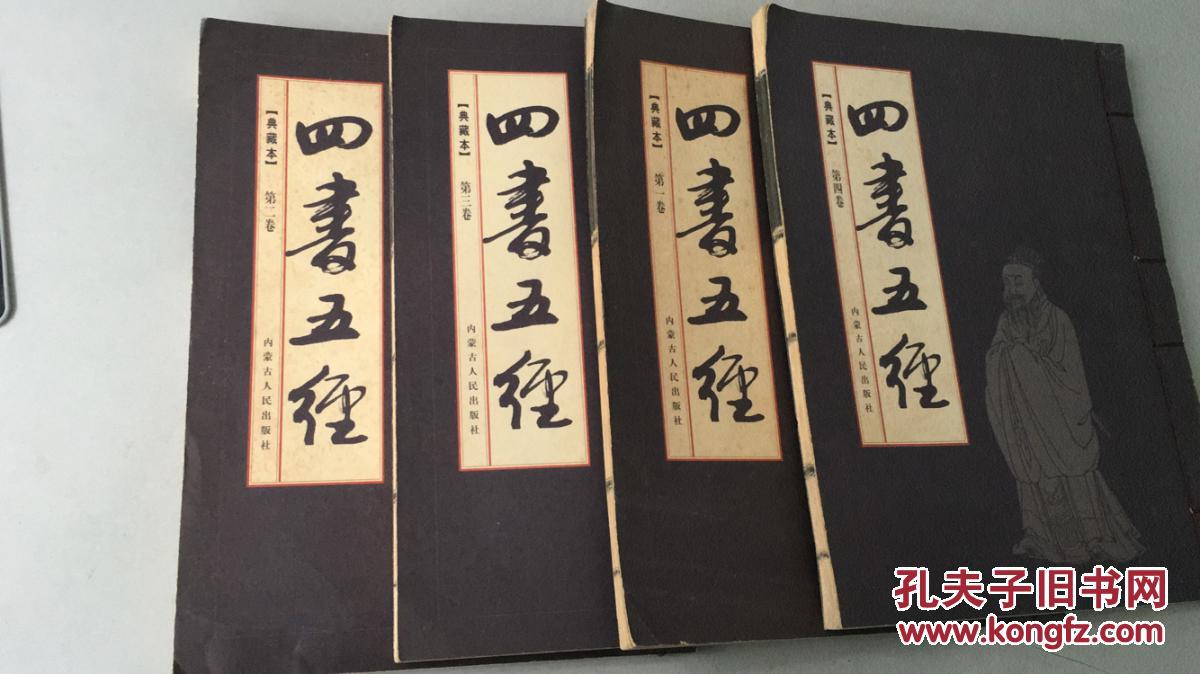 四書五經
【典藏本】 第二卷
内蒙古人民出版社
四書五經
【典藏本】 第三卷
内蒙古人民出版社
四書五經
【典藏本】 第一卷
内蒙古人民出版社
四書五經
【典藏本】 第四卷
内蒙古人民出版社
孔夫子旧书网
www.kongfz.com